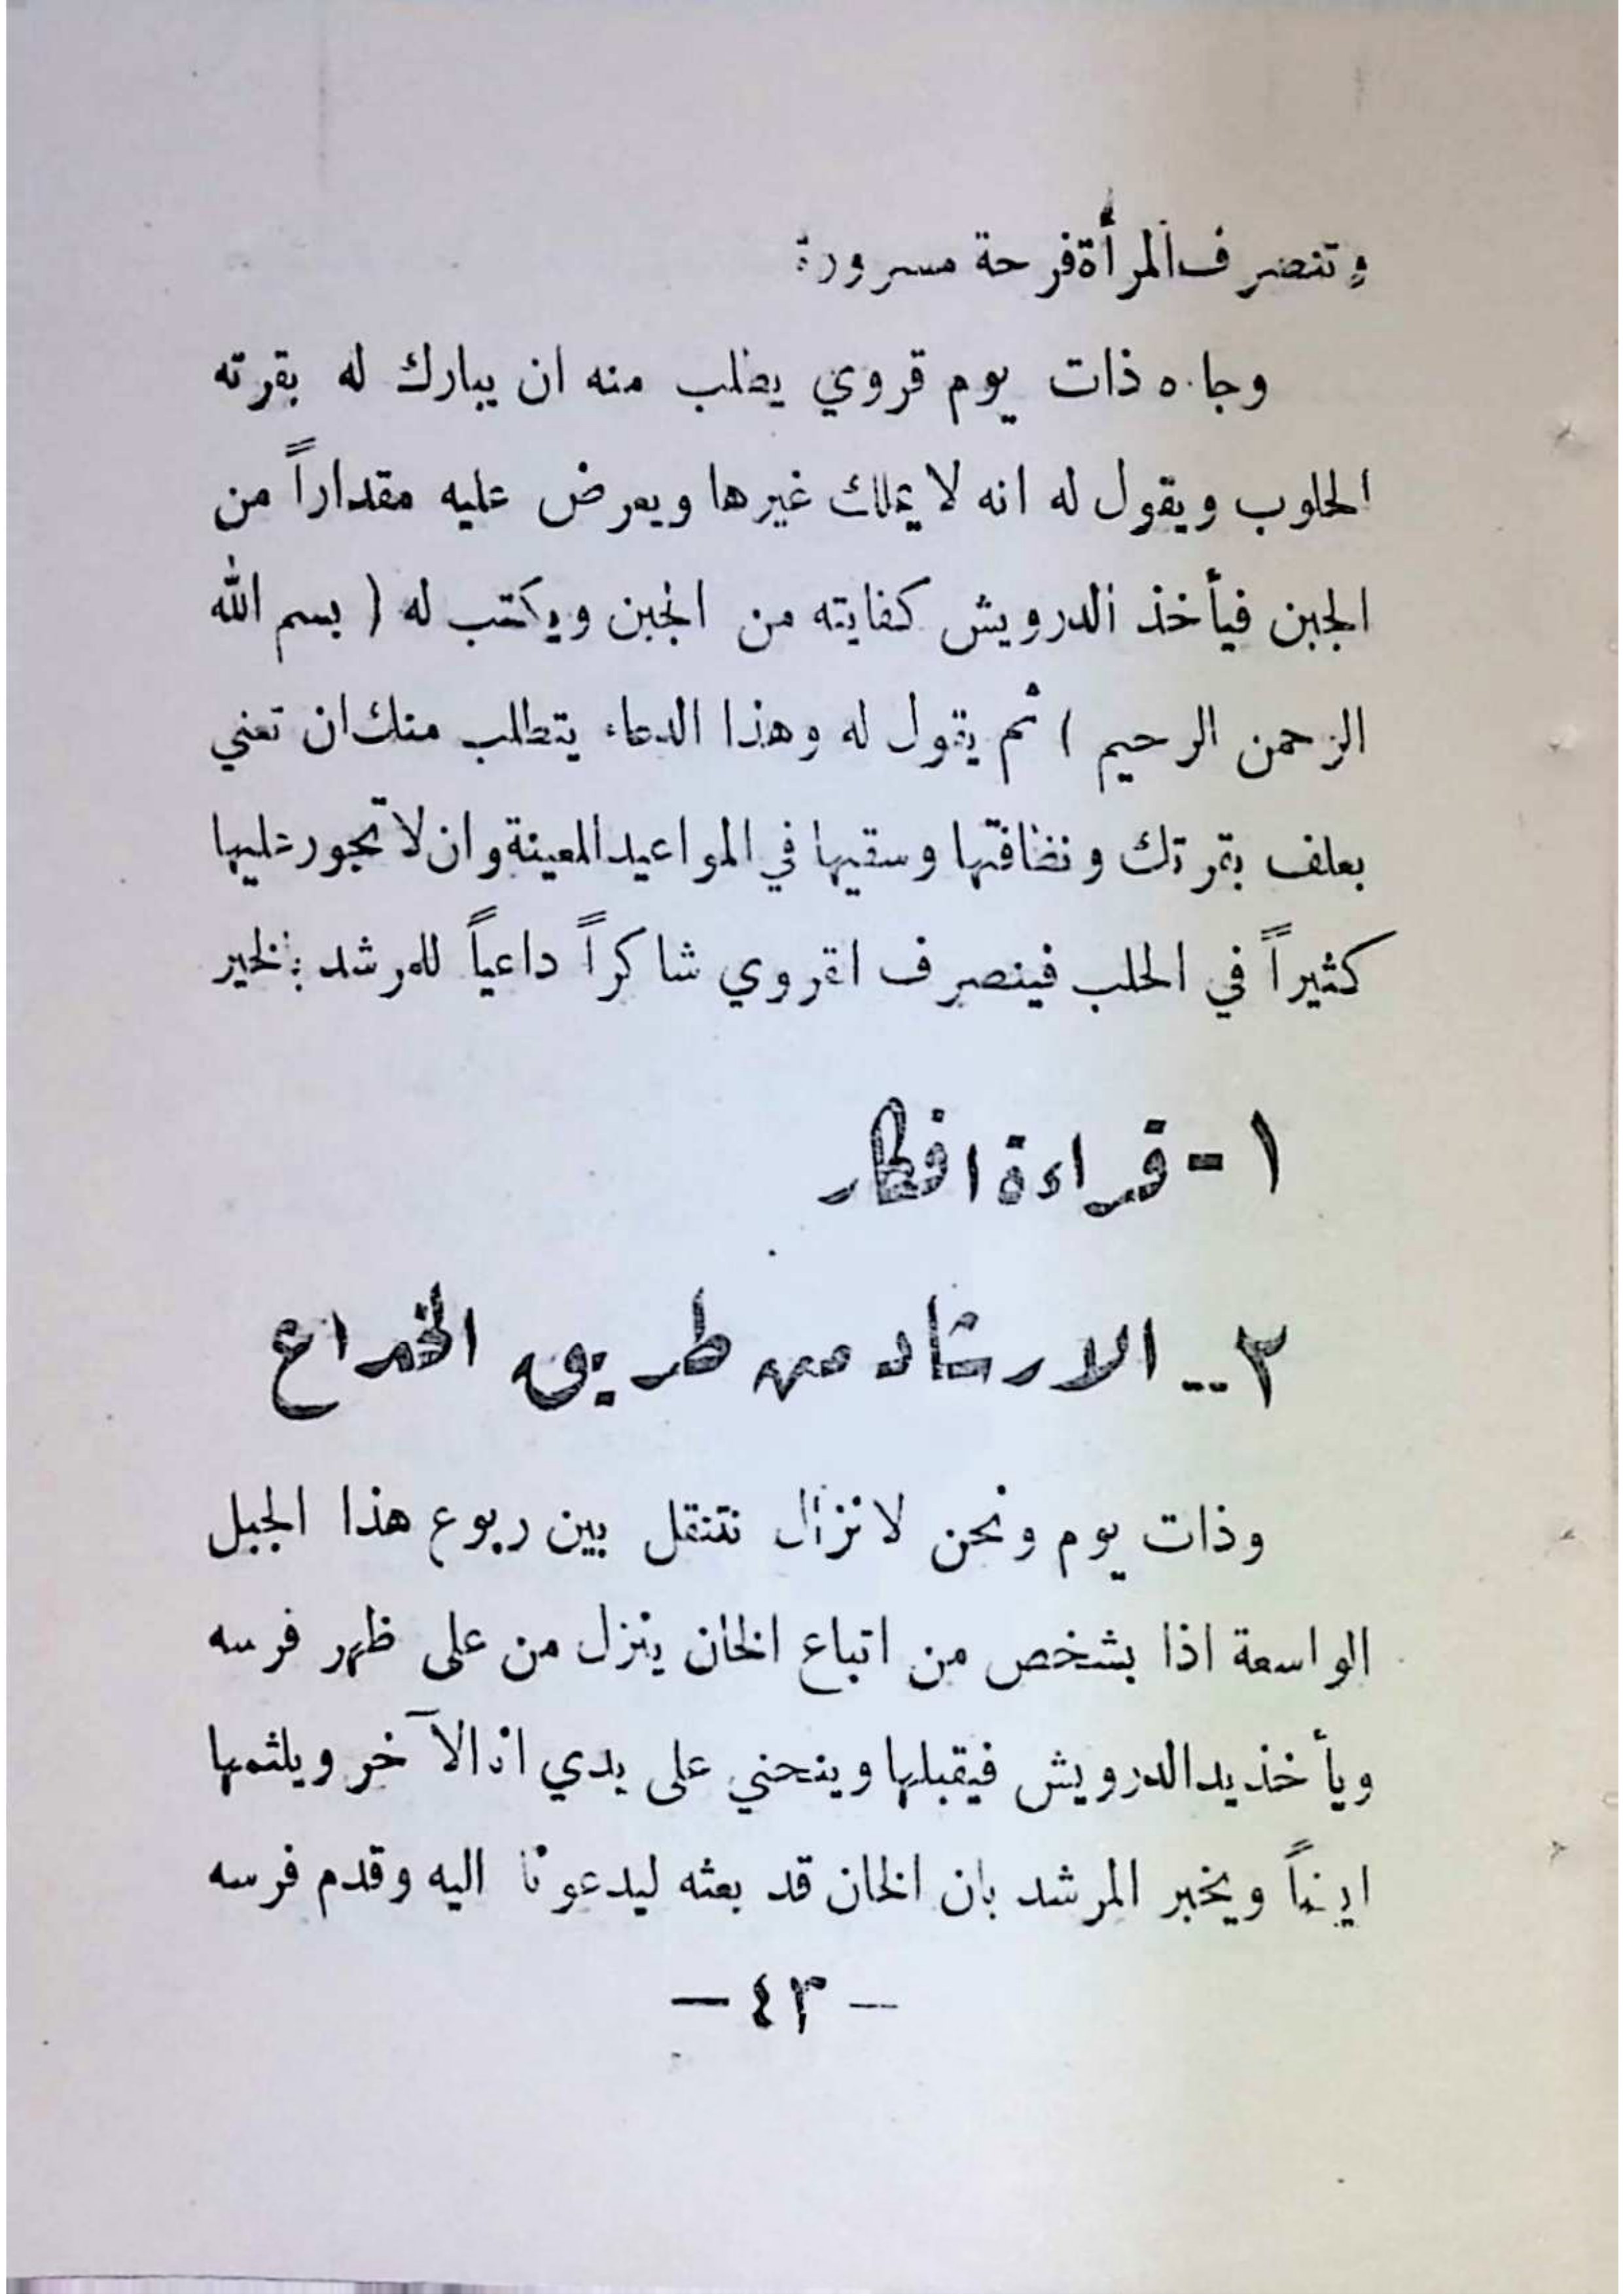 وتنصرف المرأة فرحة مسرورة
وجاءه ذات يوم قروي يطلب منه ان يبارك له بقرته
الحلوب ويقول له انه لا يملك غيرها ويعرض عليه مقداراً من
الجبن فيأخذ الدرويش كفايته من الجبن ويكتب له ( بسم الله
الرحمن الرحيم ) ثم يقول له وهذا الدعاء يتطلب منك ان تعني
بعلف بقرتك ونظافتها وسقيها في المواعيد المعينة وان لا تجور عليها
كثيراً في الحلب فينصرف القروي شاكراً داعياً للمرشد بالخير
١ - قراءة افكار
٢ - الارشاد من طريق الخداع
وذات يوم ونحن لا نزال نتنقل بين ربوع هذا الجبل
الواسعة اذا بشخص من اتباع الخان ينزل من على ظهر فرسه
ويأخذ يد الدرويش فيقبلها وينحني على يدي انا الآخر ويلثمها
ايضاً ويخبر المرشد بان الخان قد بعثه ليدعونا اليه وقدم فرسه
— ٤٣ —